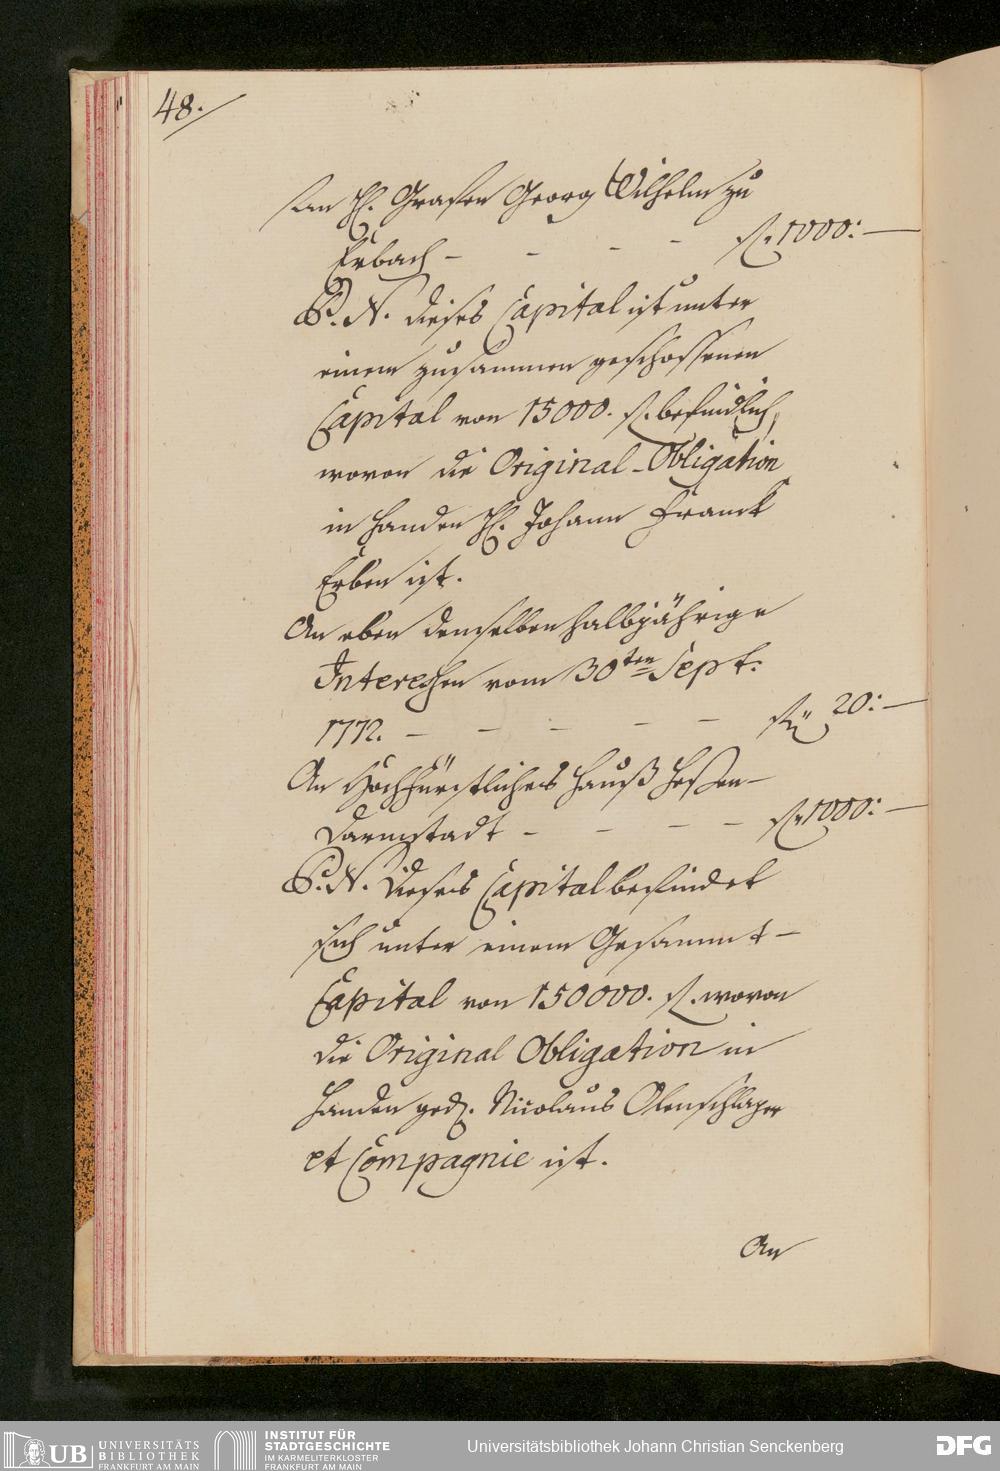 48.
An H. Grafen Georg Wilhelm zu
Erbach - - - - f. 1000:-
P. N. dieses Capital ist unter
einem zusammen geschossenen
Capital von 15000. f. befindlich,
wovon die Original-Obligation
in Handen H. Johann Franck
Erben ist.
An eben demselben halbjährige
Interessen vom 30ten Sept.
1772. - - - - - f. 20:-
An Hochfürstliches Hauß Heßen-
Darmstadt - - - - f. 1000:-
P. N. Dieses Capital befindet
sich unter einem Gesammt-
Capital von 150000. f. wovon
die Original Obligation in
Handen Nicolaus Olenschlager
et Compagnie ist.
An
UB UNIVERSITÄTS
BIBLIOTHEK
FRANKFURT AM MAIN
INSTITUT FÜR
STADTGESCHICHTE
IM KARMELITERKLOSTER
FRANKFURT AM MAIN
Universitätsbibliothek Johann Christian Senckenberg
DFG